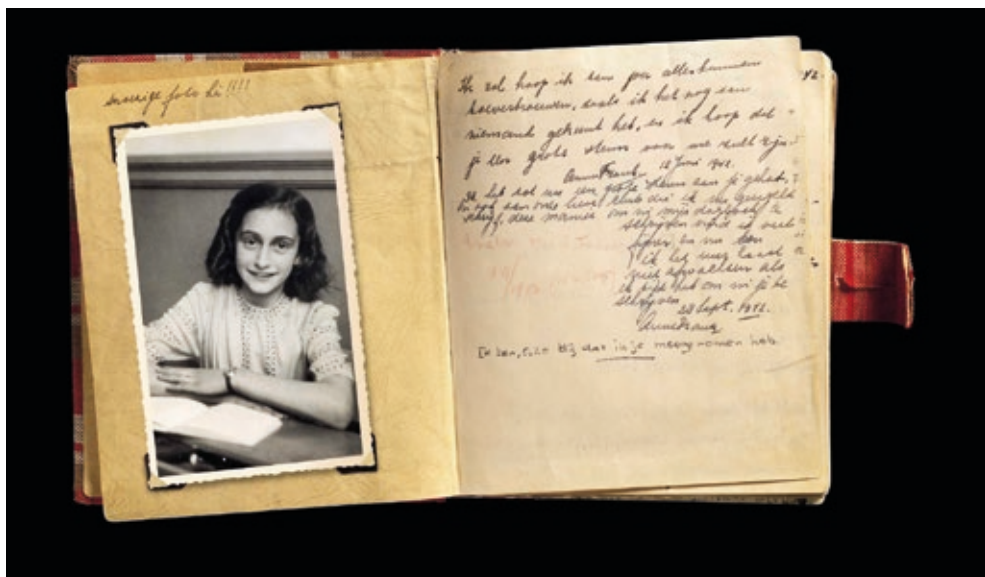 snoezige foto hè!!!!
Ik zal hoop ik aan jou alles kunnen
toevertrouwen, zoals ik het nog aan
niemand gekund heb, en ik hoop dat
je een grote steun voor me zult zijn.
Anne Frank. 12 Juni 1942.
Ik heb tot nu toe een grote steun aan je gehad,
en ook aan onze lieve club die ik nu geregeld
schrijf, deze manier om in mijn dagboek te
schrijven vind ik veel
fijner en nu kan
ik het uur haast
niet afwachten als
ik tijd heb om in je te
schrijven
28 Sept. 1942.
Anne Frank
Ik ben, o, zo blij dat ik je meegenomen heb.